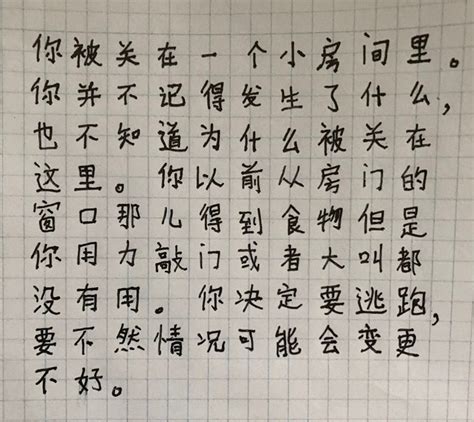 你被关在一个小房间里。
你并不记得发生了什么,
也不知道为什么被关在
这里。你以前从房门的
窗口那儿得到食物但是
你用力敲门或者大叫都
没有用。你决定要逃跑,
要不然情况可能会变更
不好。